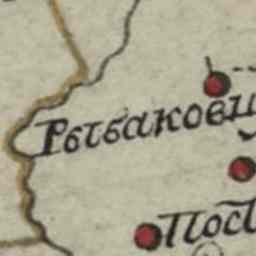 Рыбакови
Пост